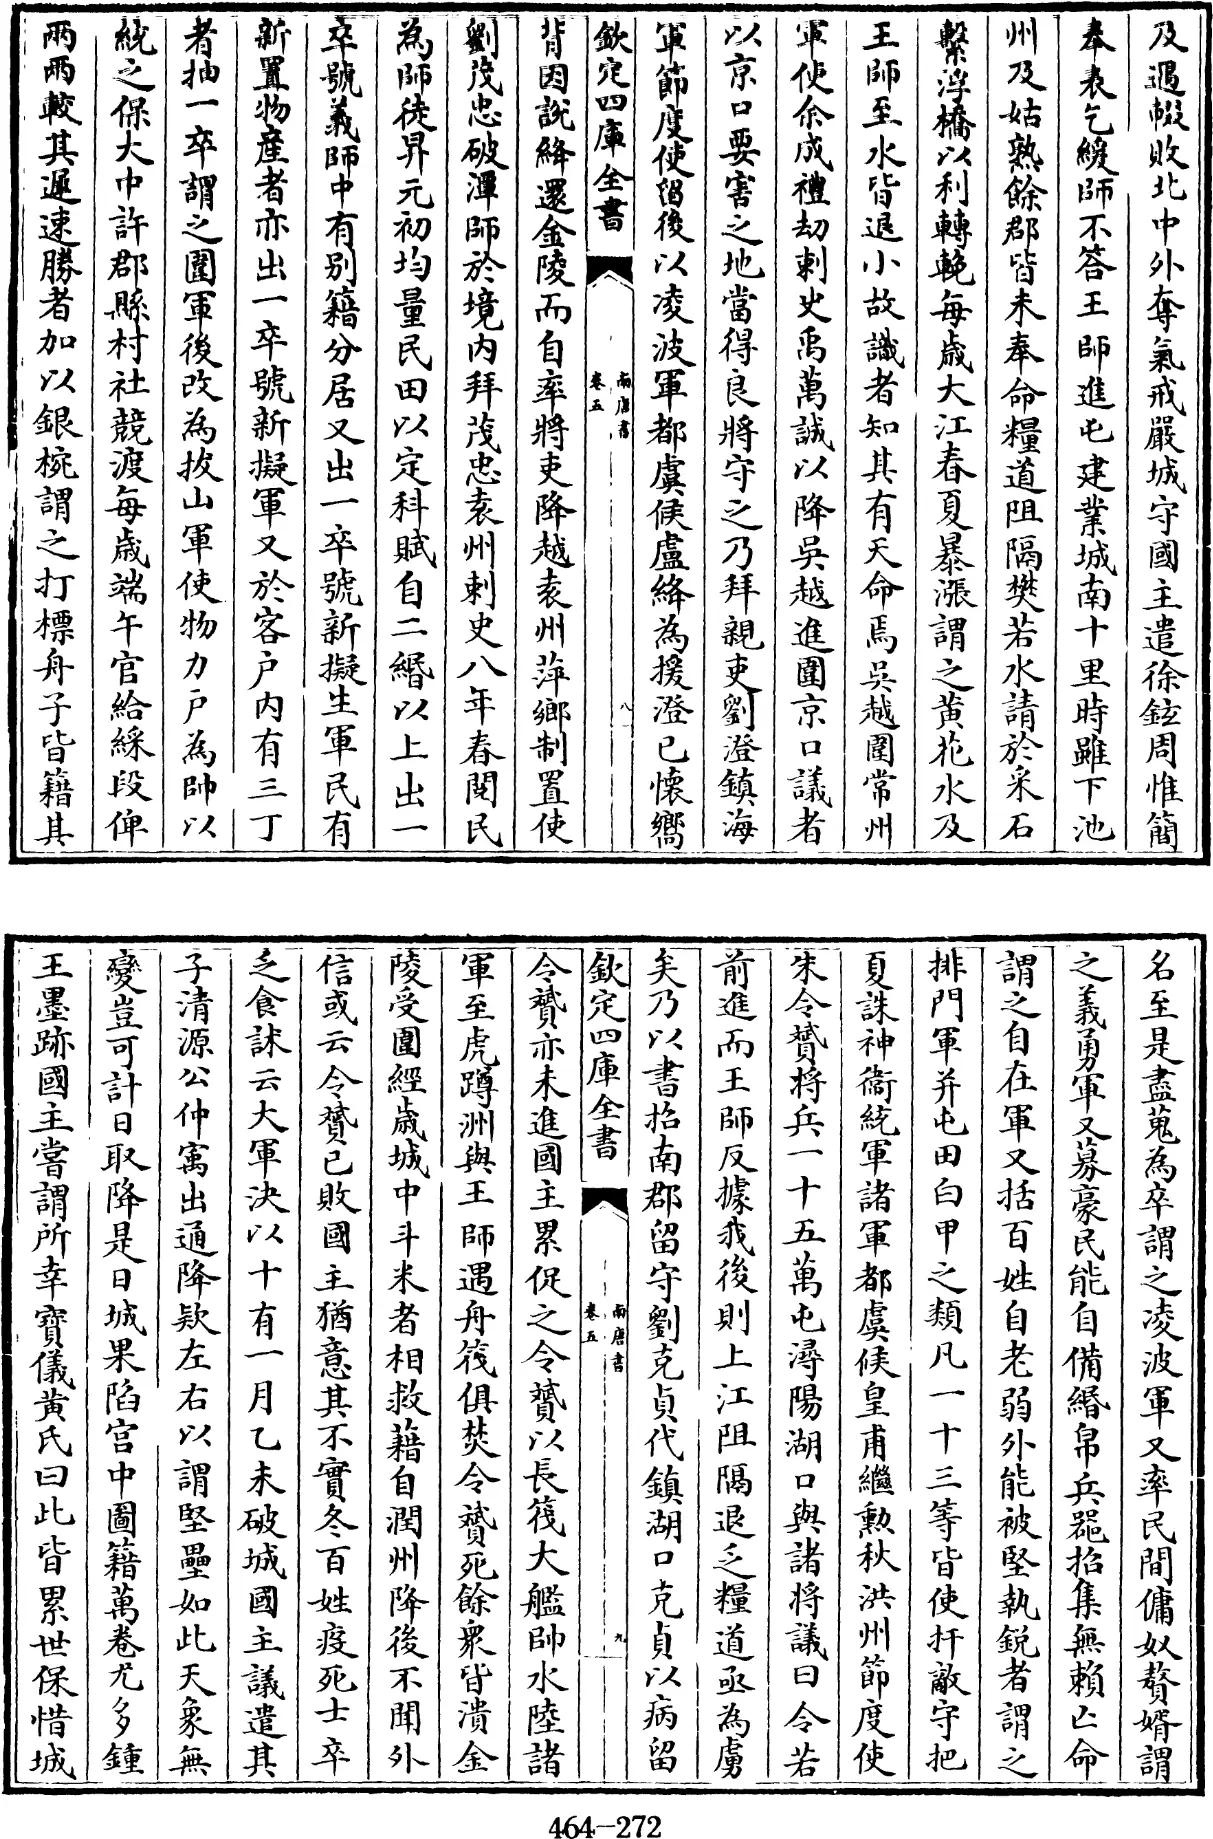 及遇輒敗北中外奪氣戒嚴城守國主遣徐鉉周惟簡
奉表乞緩師不答王師進屯建業城南十里時雖下池
州及姑熟餘郡皆未奉命糧道阻隔樊若水請於采石
繫浮橋以利轉輓每歲大江春夏暴漲謂之黄花水及
王師至水皆退小故識者知其有天命焉吳越圍常州
軍使余成禮劫刺史禹萬誠以降吳越進圍京口議者
以京口要害之地當得良將守之乃拜親吏劉澄鎮海
軍節度使留後以凌波軍都虞候盧絳為援澄已懷嚮
欽定四庫全書
南唐書
卷五
八
背因說絳還金陵而自率將吏降越袁州萍鄉制置使
劉茂忠破潭師於境内拜茂忠袁州刺史八年春閲民
為師徒昇元初均量民田以定科賦自二緡以上出一
卒號義師中有别籍分居又出一卒號新擬生軍民有
新置物産者亦出一卒號新擬軍又於客户内有三丁
者抽一卒謂之圍軍後改為拔山軍使物力户為帥以
統之保大中許郡縣村社競渡每歲端午官給綵段俾
兩兩較其遲速勝者加以銀椀謂之打標舟子皆籍其
名至是盡蒐為卒謂之凌波軍又率民間傭奴贅婿謂
之義勇軍又募豪民能自備緡帛兵器招集無賴亡命
謂之自在軍又括百姓自老弱外能被堅執鋭者謂之
排門軍并屯田白甲之類凡一十三等皆使扞敵守把
夏誅神衞統軍諸軍都虞候皇甫繼勲秋洪州節度使
朱令贇將兵一十五萬屯潯陽湖口與諸將議曰今若
前進而王師反據我後則上江阻隔退乏糧道亟為虜
矣乃以書招南郡留守劉克貞代鎮湖口克貞以病留
欽定四庫全書
南唐書
卷五
九
令贇亦未進國主累促之令贇以長筏大艦帥水陸諸
軍至虎蹲洲與王師遇舟筏俱焚令贇死餘衆皆潰金
陵受圍經歲城中斗米者相救藉自潤州降後不聞外
信或云令贇已敗國主猶意其不實冬百姓疫死士卒
乏食訹云大軍決以十有一月乙未破城國主議遣其
子清源公仲寓出通降欵左右以謂堅壘如此天象無
變豈可計日取降是日城果陷宫中圖籍萬卷尤多鍾
王墨跡國主嘗謂所幸寶儀黄氏曰此皆累世保惜城
464-272